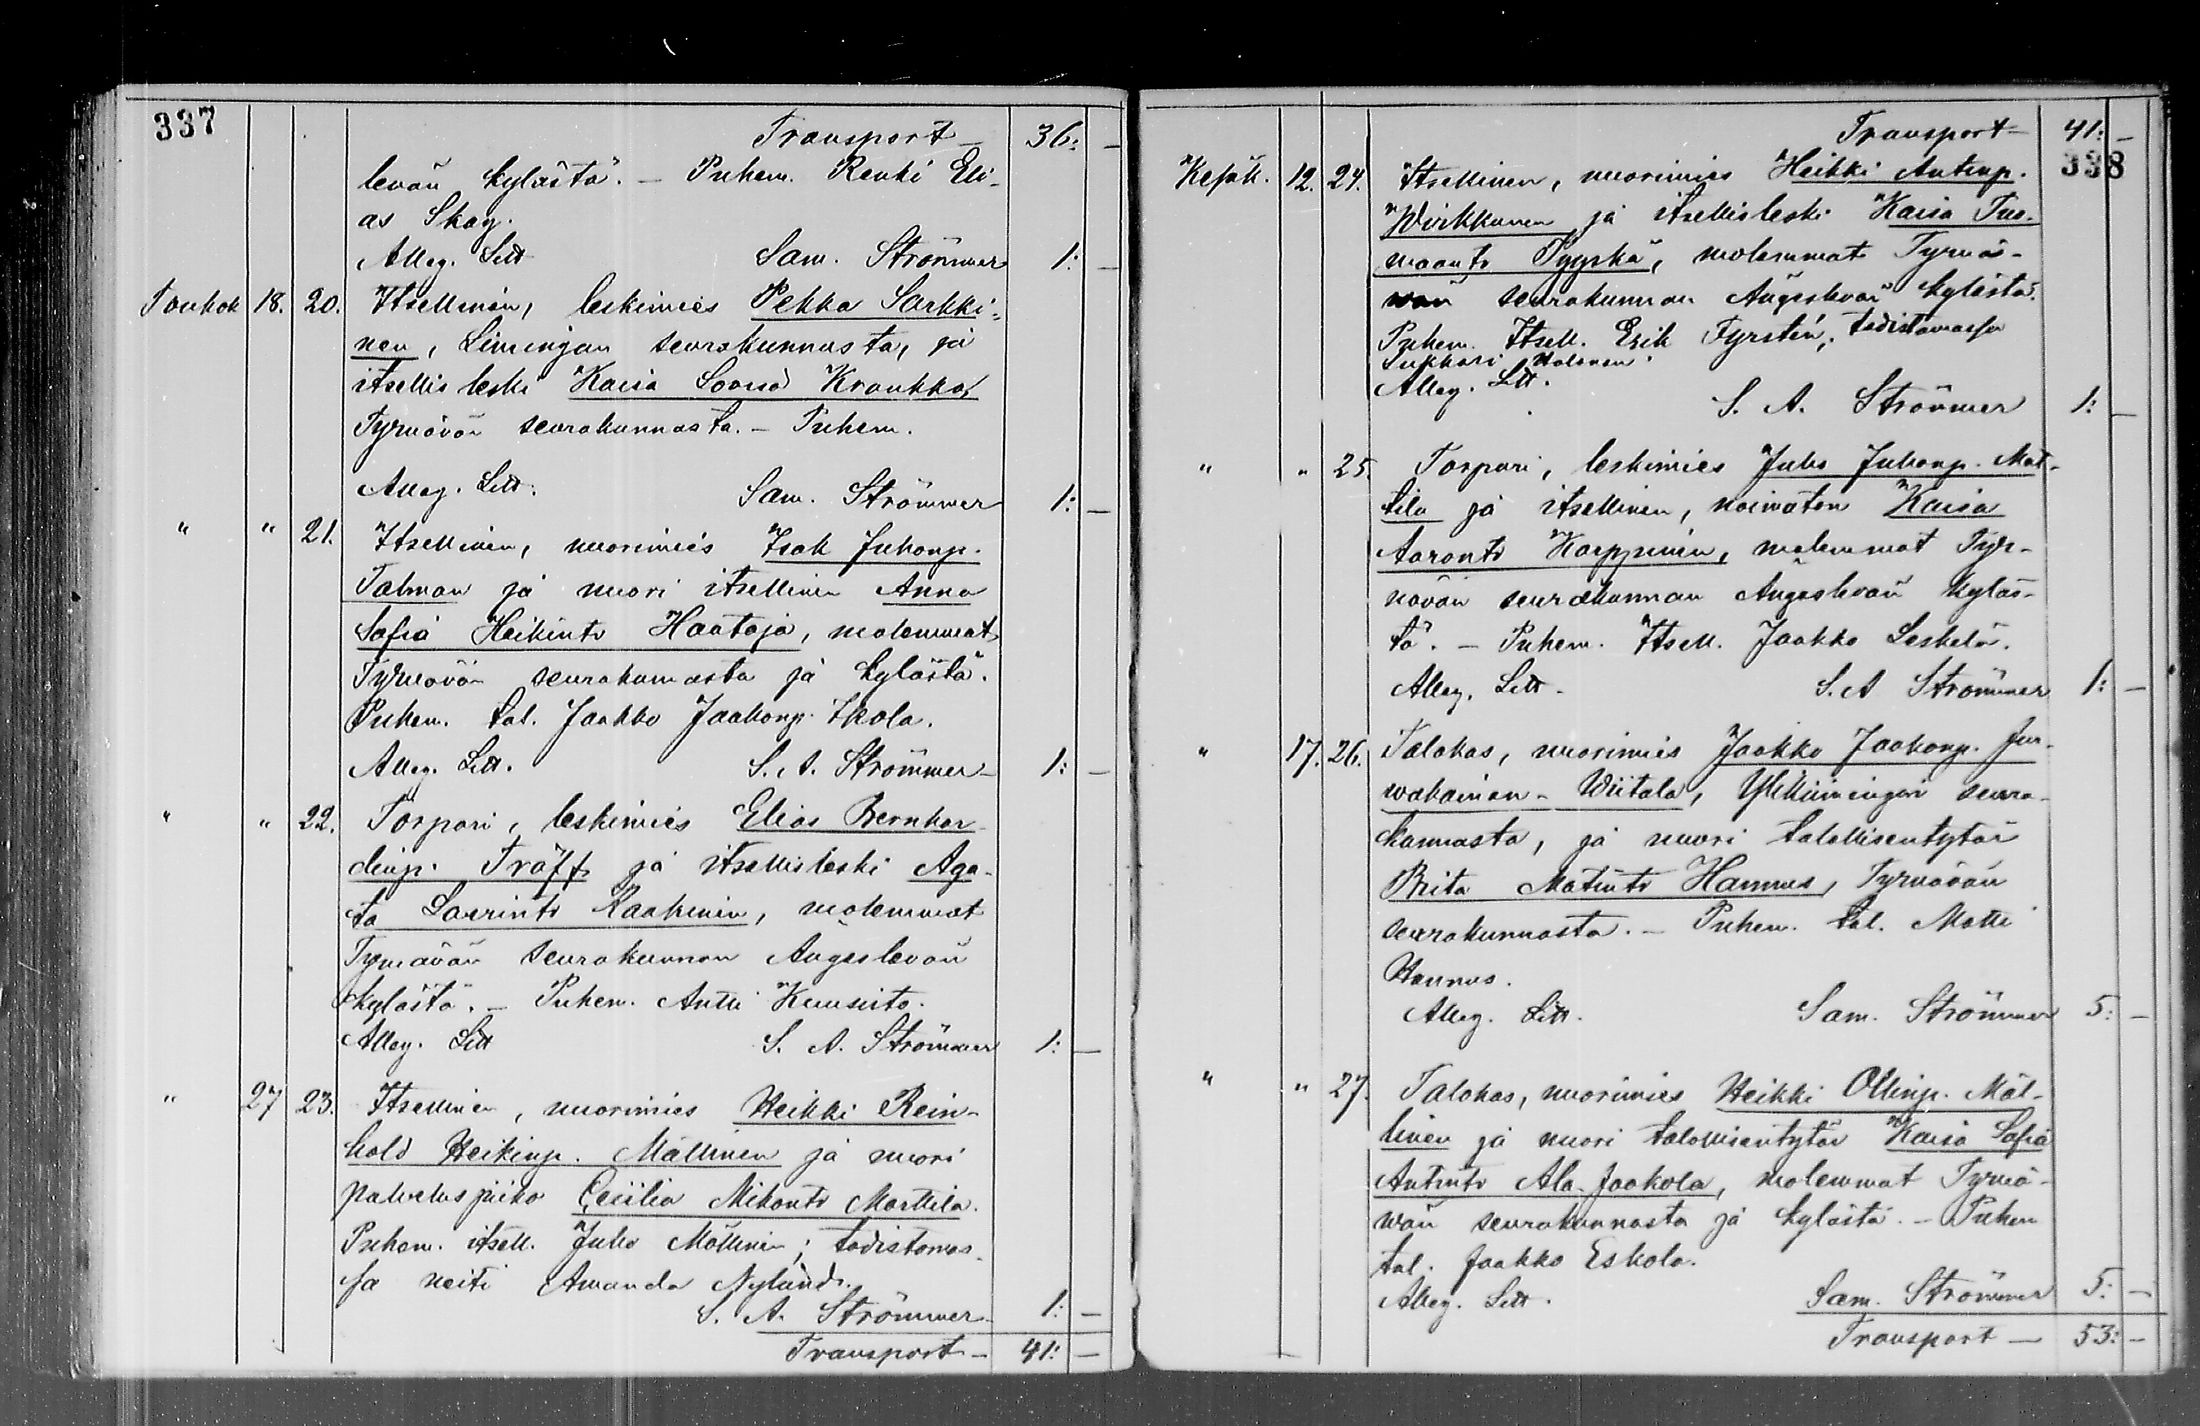 337
Transport — 36: —
levän kylästä. — Puhem. Renki Eli-
as Skog.
Alleg. Litt. Sam. Strömmer 1: —
Toukok 18. 20. Itsellinen, leskimies Pekka Sarkki-
nen, Limingan seurakunnasta, ja
itsellisleski Kaisa Loviisa Kraukka,
Tyrnävän seurakunnasta. — Puhem.
Alleg. Litt. Sam. Strömmer 1: —
" " 21. Itsellinen, nuorimies Isak Juhonp.
Talman ja nuori itsellinen Anna
Sofia Heikintr Haataja, molemmat
Tyrnävän seurakunnasta ja kylästä.
Puhem. tal. Jaakko Jaakonp. Ikola.
Alleg. Litt. S. A. Strömmer 1: —
" " 22. Torpari, leskimies Elias Bernhar-
dinp. Träff ja itsellisleski Aga-
ta Laurintr Laakinen, molemmat
Tyrnävän seurakunnan Ängeslevän
kylästä. — Puhem. Antti Kuusisto.
Alleg. Litt S. A. Strömmer 1: —
" 27 23. Itsellinen, nuorimies Heikki Rein-
hold Heikinp. Mällinen ja nuori
palveluspiika Cesilia Mikontr Marttila.
Puhem. itsell. Juho Mällinen; todistamas-
sa neiti Amanda Nylund.
S. A. Strömmer 1: —
Transport — 41: —
Transport — 41: —
338
Kesäk. 12. 24. Itsellinen, nuorimies Heikki Antinp.
Wirkkunen ja itsellisleski Kaisa Tuo-
maantr Pyyskä, molemmat Tyrnä-
vän seurakunnan Ängeslevän kylästä.
Puhem. Itsell. Erik Fyrstén, todistamassa
Sukkari Halonen.
Alleg. Litt.
S. A. Strömmer 1: —
" " 25. Torpari, leskimies Juho Juhonp. Mat-
tila ja itsellinen, naimaton Kaisa
Aarontr Karppinen, molemmat Tyr-
nävän seurakunnan Ängeslevän kyläs-
tä. — Puhem. Itsell. Jaakko Leskelä.
Alleg. Litt. S. A Strömmer 1: —
" 17. 26. Talokas, nuorimies Jaakko Jaakonp. Jur-
wakainen-Wiitala, Ylikiimingin seura-
kunnasta, ja nuori talollisentytär
Brita Matintr Hannus, Tyrnävän
seurakunnasta. — Puhem. tal. Matti
Hannus.
Alleg. Litt. Sam. Strömmer 5: —
" " 27. Talokas, nuorimies Heikki Ollinp. Mäl-
linen ja nuori talollisentytär Kaisa Sofia
Antintr Ala-Jaakola, molemmat Tyrnä-
wän seurakunnasta ja kylästä. — Puhem
tal. Jaakko Eskola.
Alleg. Litt. Sam. Strömmer 5: —
Transport — 53: —